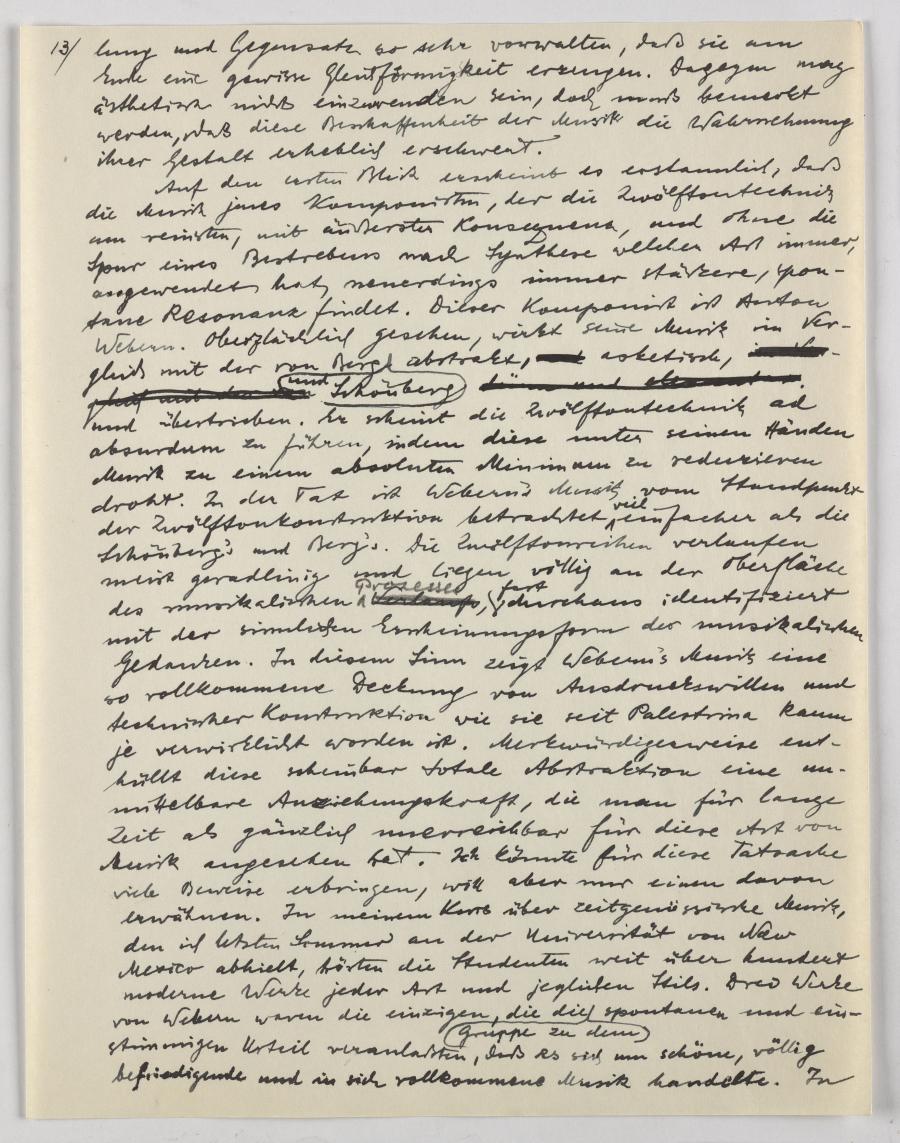 13/ lung und Gegensatz so sehr vorwalten, daß sie am
Ende eine gewisse Gleichförmigkeit erzeugen. Dagegen mag
ästhetisch nichts einzuwenden sein, doch muß bemerkt
werden, daß diese Beschaffenheit der Musik die Wahrnehmung
ihrer Gestalt erheblich erschwert.
Auf den ersten Blick erscheint es erstaunlich, daß
die Musik jenes Komponisten, der die Zwölftontechnik
am reinsten, mit äußerster Konsequenz, und ohne die
Spur eines Bestrebens nach Synthese welcher Art immer,
angewendet hat, neuerdings immer stärkere, spon-
tane Resonanz findet. Dieser Komponist ist Anton
Webern. Oberflächlich gesehen, wirkt seine Musik im Ver-
gleich mit der von Berg abstrakt, asketisch,
und Schönberg
und übertrieben. Er scheint die Zwölftontechnik ad
absurdum zu führen, indem diese unter seinen Händen
Musik zu einem absoluten Minimum zu reduzieren
droht. In der Tat ist Webern's Musik, vom Standpunkt
der Zwölftonkonstruktion betrachtet, viel einfacher als die
Schönberg's und Berg's. Die Zwölftonreihen verlaufen
meist geradlinig und liegen völlig an der Oberfläche
des musikalischen Prozesses, fast durchaus identifiziert
mit der sinnlichen Erscheinungsform des musikalischen
Gedanken. In diesem Sinn zeigt Webern's Musik eine
so vollkommene Deckung von Ausdruckswillen und
technischer Konstruktion wie sie seit Palestrina kaum
je verwirklicht worden ist. Merkwürdigerweise ent-
hüllt diese scheinbar totale Abstraktion eine un-
mittelbare Anziehungskraft, die man für lange
Zeit als gänzlich unerreichbar für diese Art von
Musik angesehen hat. Ich könnte für diese Tatsache
viele Beweise erbringen, will aber nur einen davon
erwähnen. In meinem Kurs über zeitgenössische Musik,
den ich letzten Sommer an der Universität von New
Mexico abhielt, hörten die Studenten weit über hundert
moderne Werke jeder Art und jeglichen Stils. Drei Werke
von Webern waren die einzigen, die die spontanen und ein-
Gruppe zu dem
stimmigen Urteil veranlaßten, daß es sich um schöne, völlig
befriedigende und in sich vollkommene Musik handelte. In